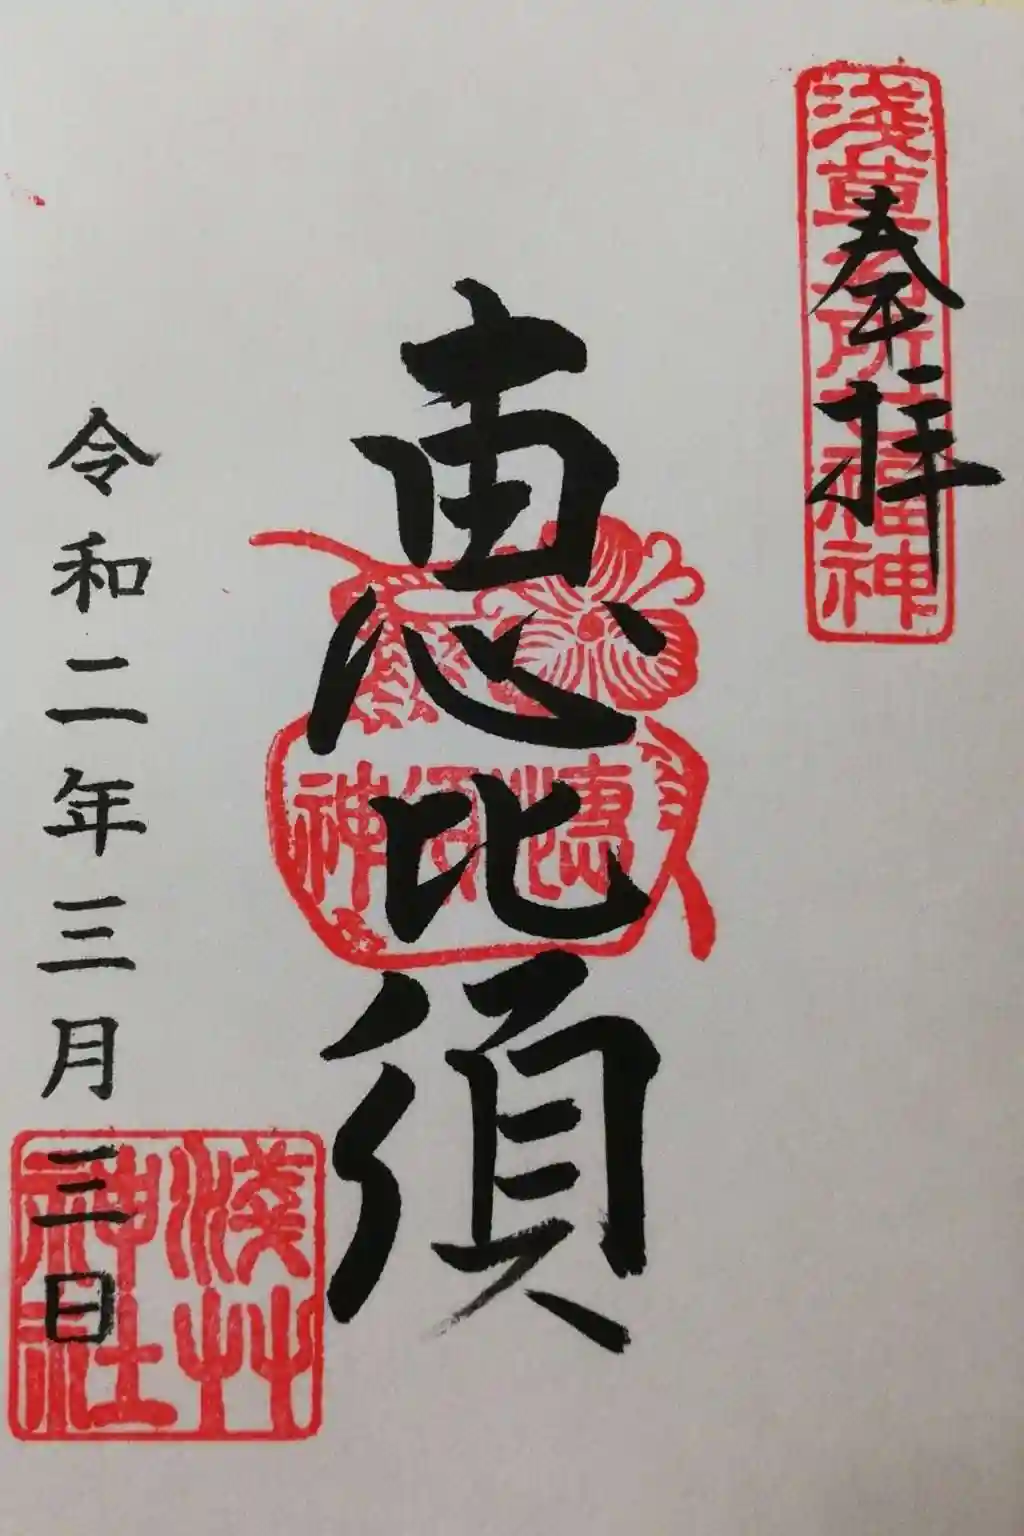 淺草名所七福神
奉拝
恵比須
惠比須神
令和二年三月三日
淺草神社